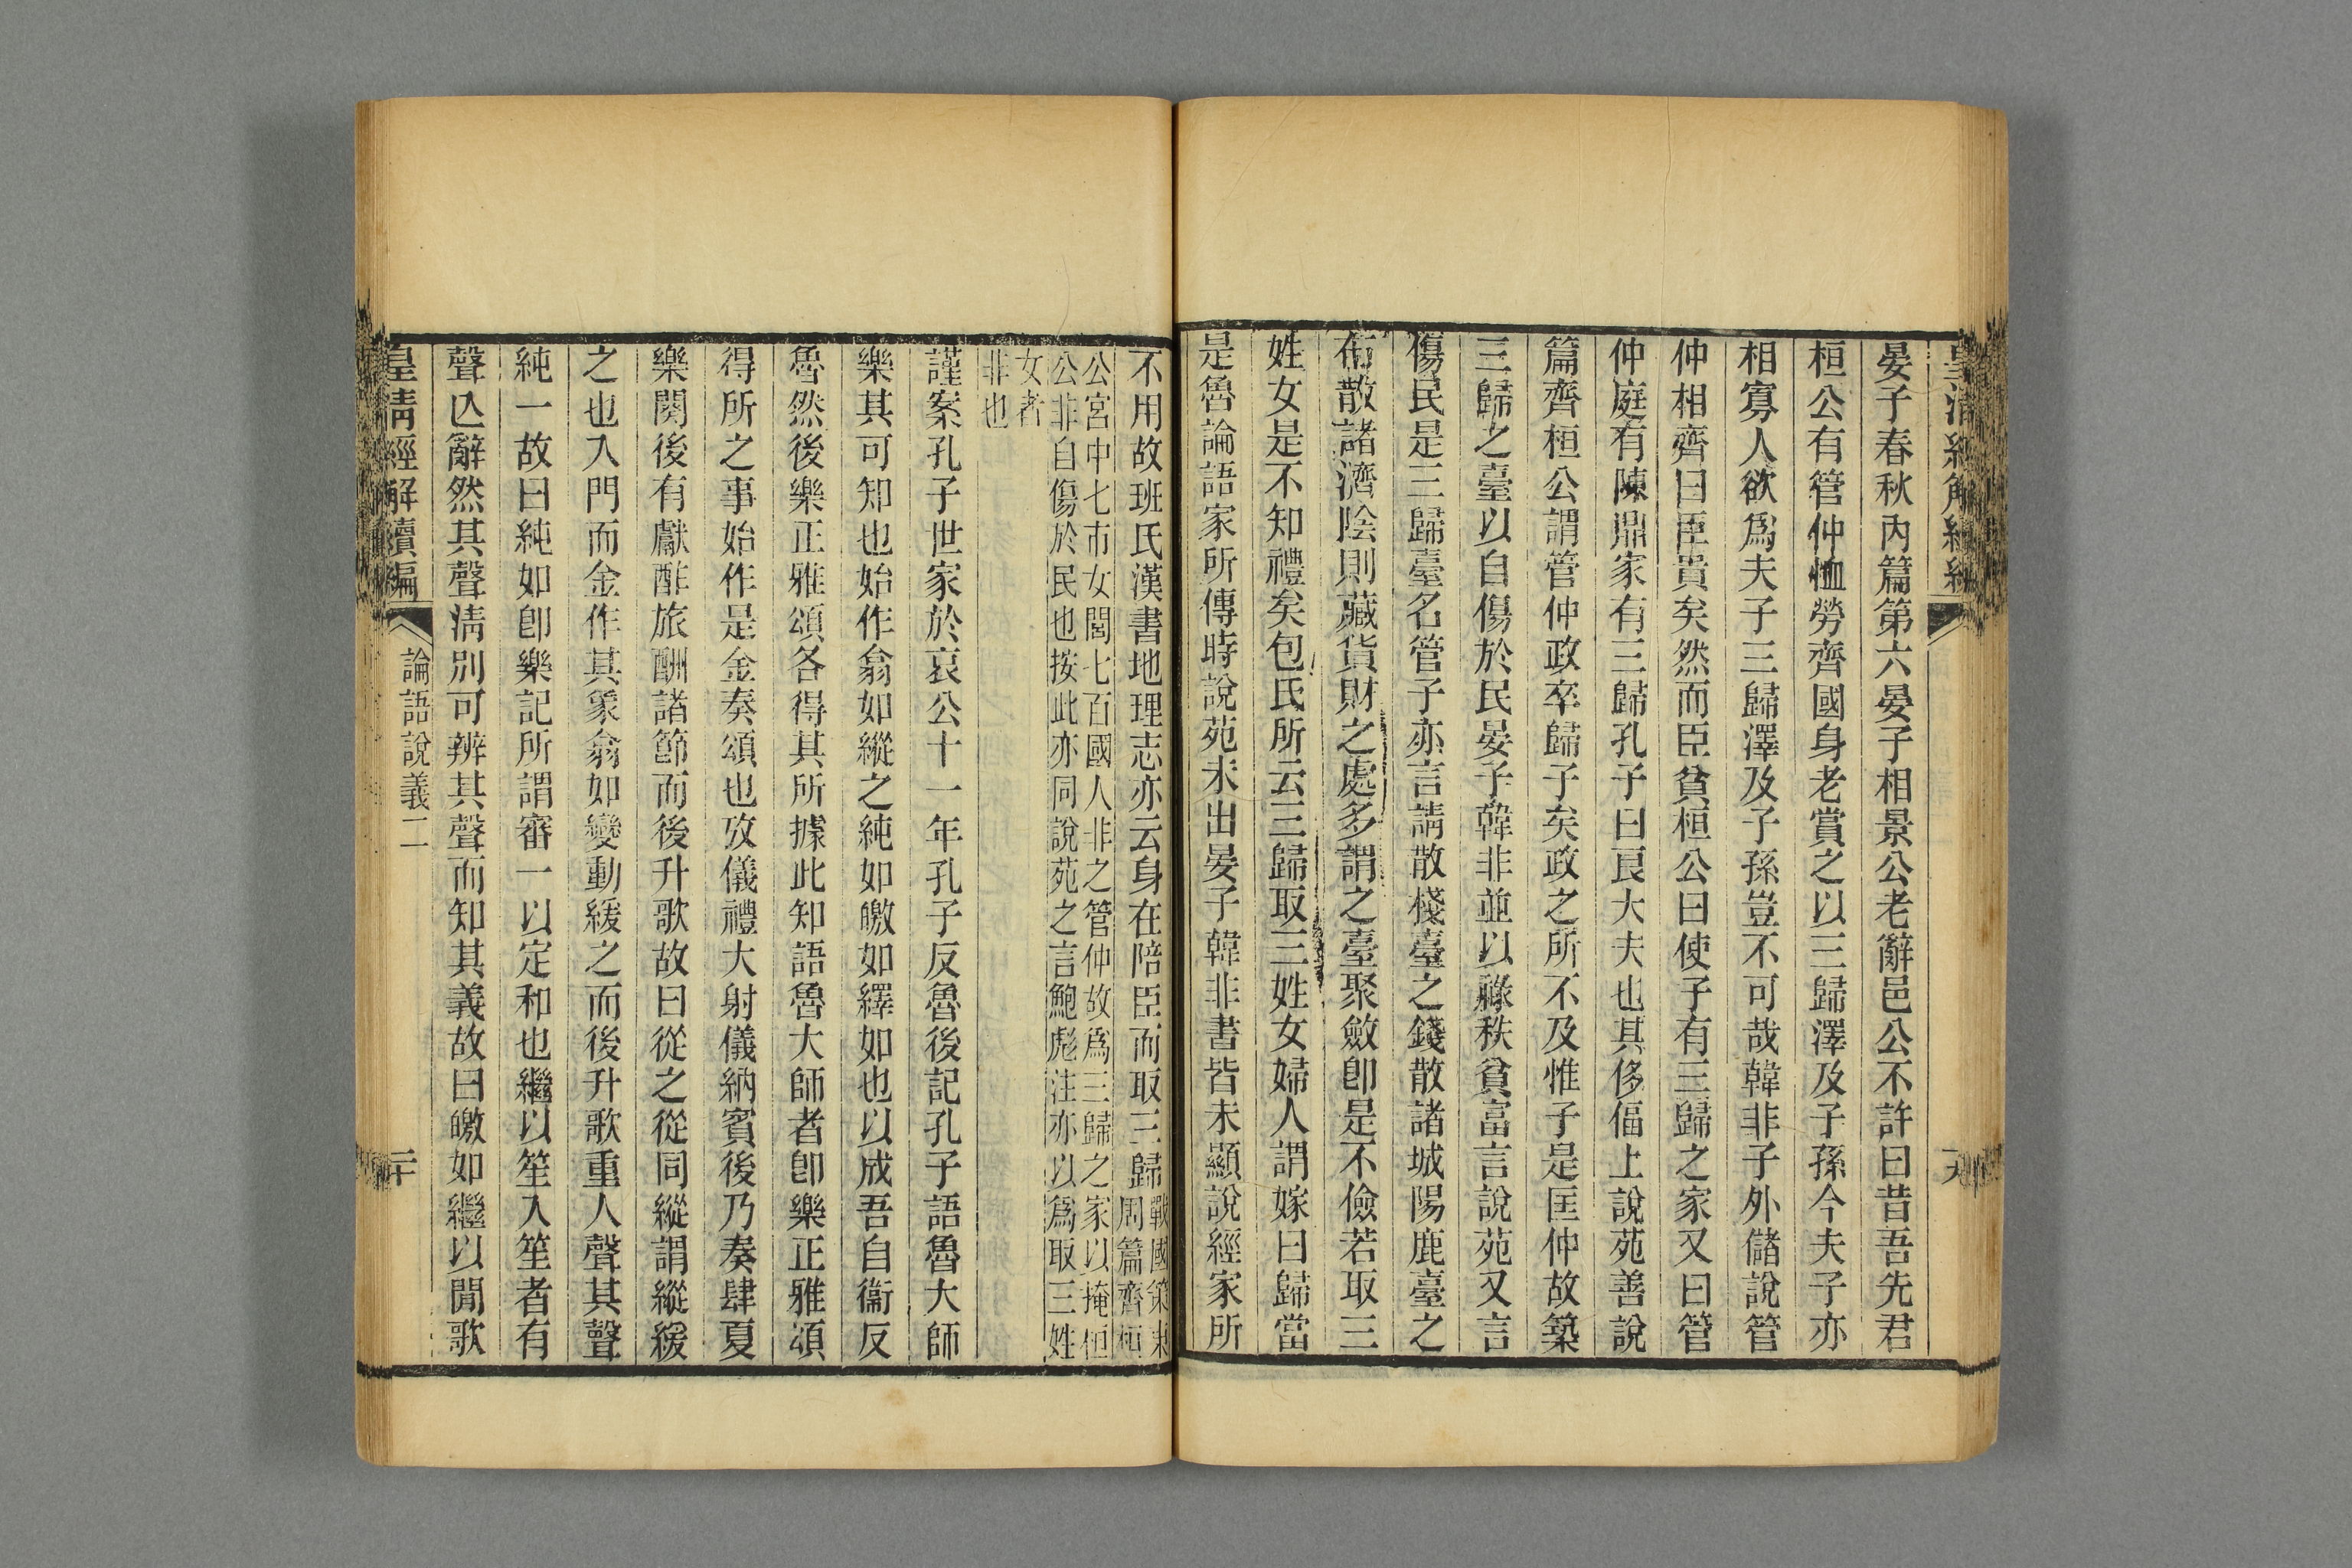 晏子春秋內篇第六晏子相景公老辭邑公不許曰昔吾先君
桓公有管仲恤勞齊國身老賞之以三歸澤及子孫今夫子亦
相寡人欲爲夫子三歸澤及子孫豈不可哉韓非子外儲說管
仲相齊曰臣貴矣然而臣貧桓公曰使子有三歸之家又曰管
仲庭有陳鼎家有三歸孔子曰良大夫也其侈偪上說苑善說
篇齊桓公謂管仲政卒歸子矣政之所不及惟子是匡仲故築
三歸之臺以自傷於民晏子韓非並以祿秩貧富言說苑又言
傷民是三歸臺名管子亦言請散棧臺之錢散諸城陽鹿臺之
布散諸濟陰則藏貨財之處多謂之臺聚斂卽是不儉若取三
姓女是不知禮矣包氏所云三歸取三姓女婦人謂嫁曰歸當
是魯論語家所傳時說苑未出晏子韓非書皆未顯說經家所
不用故班氏漢書地理志亦云身在陪臣而取三歸戰國策東
周篇齊桓
公宮中七市女閭七百國人非之管仲故爲三歸之家以掩桓
公非自傷於民也按此亦同說苑之言鮑彪注亦以爲取三姓
女者
非也
謹案孔子世家於哀公十一年孔子反魯後記孔子語魯大師
樂其可知也始作翕如縱之純如皦如繹如也以成吾自衞反
魯然後樂正雅頌各得其所據此知語魯大師者卽樂正雅頌
得所之事始作是金奏頌也攷儀禮大射儀納賓後乃奏肆夏
樂闋後有獻酢旅酬諸節而後升歌故曰從之從同縱謂縱緩
之也入門而金作其象翕如變動緩之而後升歌重人聲其聲
純一故曰純如卽樂記所謂審一以定和也繼以笙入笙者有
聲亾辭然其聲淸別可辨其聲而知其義故曰皦如繼以閒歌
皇淸經解續編
論語說義二
二十